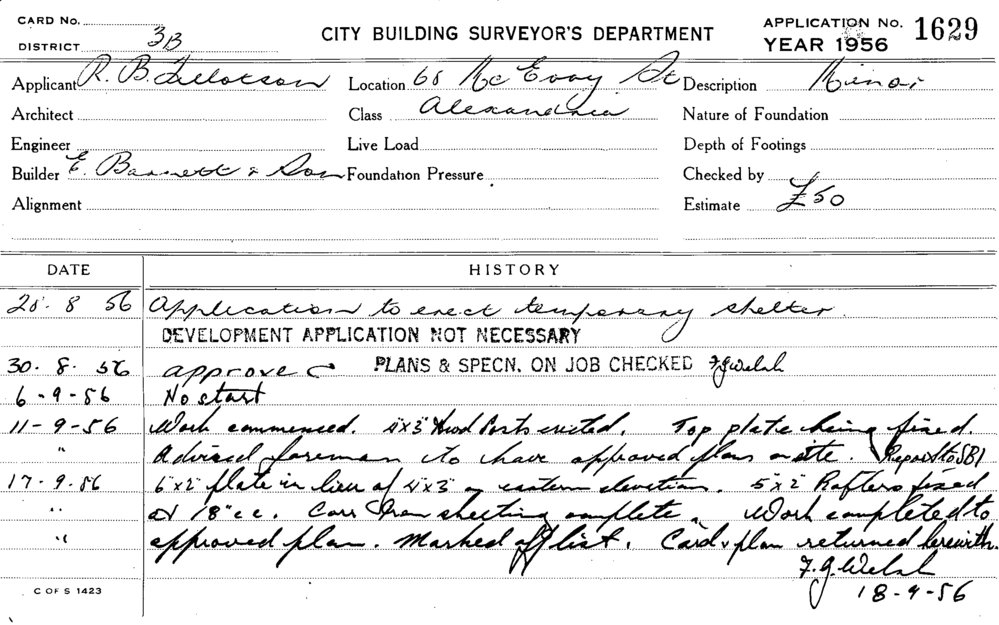 CARD No.
DISTRICT 3B
CITY BUILDING SURVEYOR'S DEPARTMENT
APPLICATION No. 1629
YEAR 1956
Applicant R. B. Tillotson Location 68 McEvoy St Description Minor
Architect Class Alexandria Nature of Foundation
Engineer Live Load Depth of Footings
Builder E. Barnett & Son Foundation Pressure Checked by
Alignment Estimate £50
DATE HISTORY
28. 8 56 Application to erect temporary shelter.
DEVELOPMENT APPLICATION NOT NECESSARY
30. 8. 56 approved PLANS & SPECN. ON JOB CHECKED F.J. Welsh
6-9-56 No start
11-9-56 Work commenced. 4"x3" Hwd Posts erected. Top plate being fixed.
" Advised foreman to have approved plans on site. (Report to SBI
17-9-56 6"x2" plate in lieu of 4"x3" on eastern elevation. 5"x2" Rafters fixed
" at 18" c.c. Corr Iron sheeting complete. Work completed to
" approved plan. Marked off list. Card & plan returned herewith.
F.J. Welsh
18-9-56
C OF S 1423